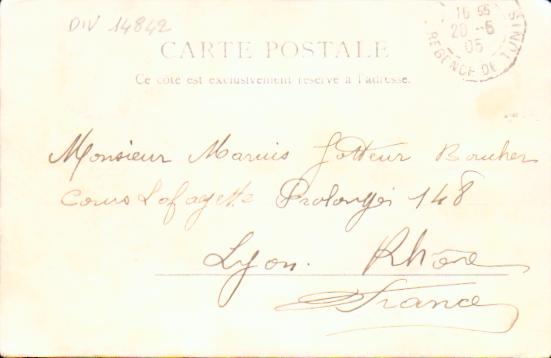 DIV 14842
16 55
20 -6
05
REGENCE DE TUNIS
CARTE POSTALE
Ce côté est exclusivement réservé à l'adresse.
Monsieur Marius Jotteur Boucher
Cours Lafayette Prolongée 148
Lyon. Rhône
France